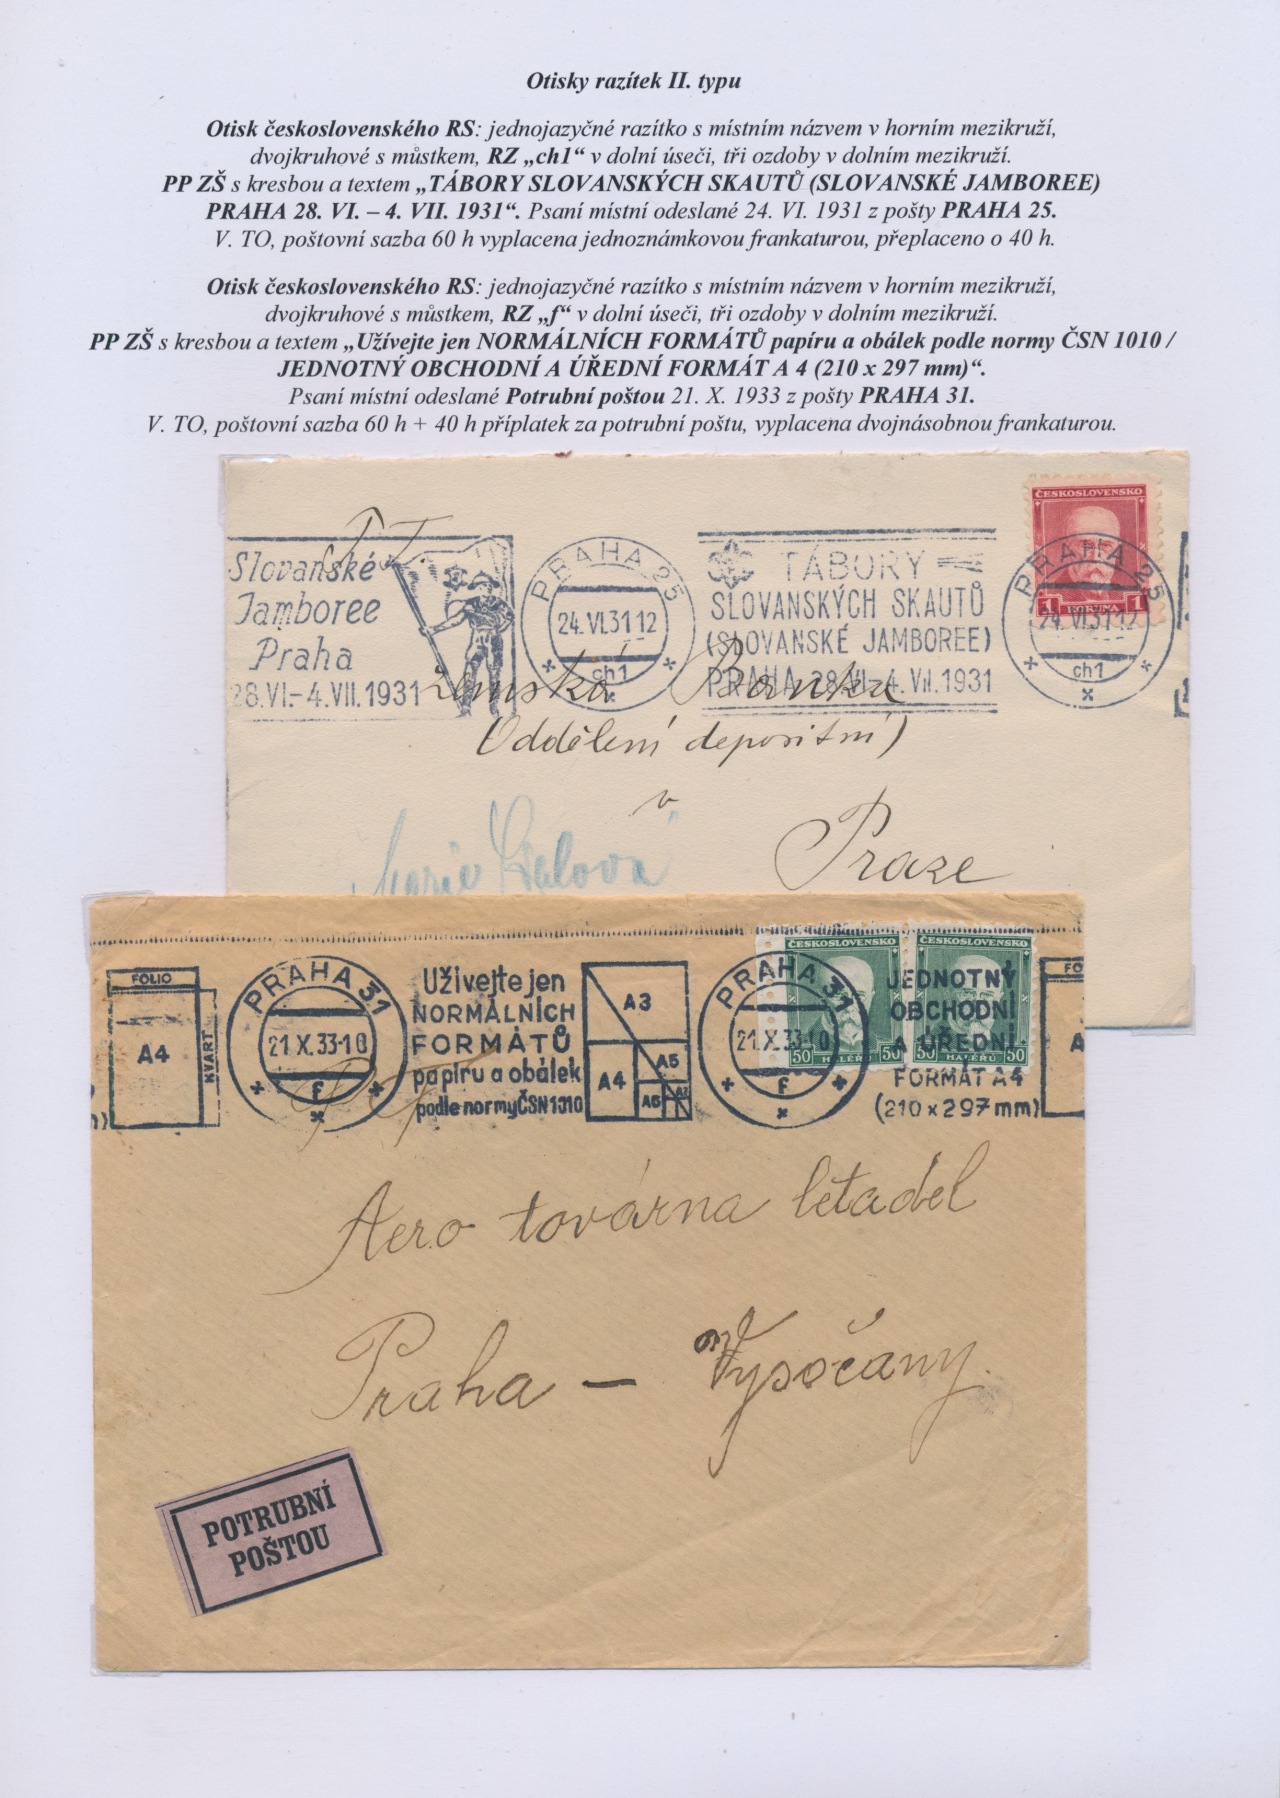 Otisky razítek II. typu
Otisk československého RS: jednojazyčné razítko s místním názvem v horním mezikruží,
dvojkruhové s můstkem, RZ „ch1“ v dolní úseči, tři ozdoby v dolním mezikruží.
PP ZŠ s kresbou a textem „TÁBORY SLOVANSKÝCH SKAUTŮ (SLOVANSKÉ JAMBOREE)
PRAHA 28. VI. – 4. VII. 1931“. Psaní místní odeslané 24. VI. 1931 z pošty PRAHA 25.
V. TO, poštovní sazba 60 h vyplacena jednoznámkovou frankaturou, přeplaceno o 40 h.
Otisk československého RS: jednojazyčné razítko s místním názvem v horním mezikruží,
dvojkruhové s můstkem, RZ „f“ v dolní úseči, tři ozdoby v dolním mezikruží.
PP ZŠ s kresbou a textem „Užívejte jen NORMÁLNÍCH FORMÁTŮ papíru a obálek podle normy ČSN 1010 /
JEDNOTNÝ OBCHODNÍ A ÚŘEDNÍ FORMÁT A 4 (210 x 297 mm)“.
Psaní místní odeslané Potrubní poštou 21. X. 1933 z pošty PRAHA 31.
V. TO, poštovní sazba 60 h + 40 h příplatek za potrubní poštu, vyplacena dvojnásobnou frankaturou.
Slovanské
Jamboree
Praha
28.VI.-4.VII.1931
PRAHA 25
24.VI.31 12
ch1
TÁBORY
SLOVANSKÝCH SKAUTŮ
(SLOVANSKÉ JAMBOREE)
PRAHA 28.VI.-4.VII.1931
ČESKOSLOVENSKO
1 KORUNA 1
PRAHA 25
24.VI.31 12
ch1
Zemská Banka
(Oddělení depositní)
v
Praze
Marie
FOLIO
A4
KVART
PRAHA 31
21.X.33-10
f
Užívejte jen
NORMÁLNÍCH
FORMÁTŮ
papíru a obálek
podle normy ČSN 1010
A3
A4
A5
A6
A7
PRAHA 31
21.X.33-10
f
ČESKOSLOVENSKO
50 HALÉŘŮ 50
ČESKOSLOVENSKO
50 HALÉŘŮ 50
JEDNOTNÝ
OBCHODNÍ
A ÚŘEDNÍ
FORMÁT A4
(210 x 297 mm)
FO
A
Aero továrna letadel
Praha – Vysočany.
POTRUBNÍ
POŠTOU